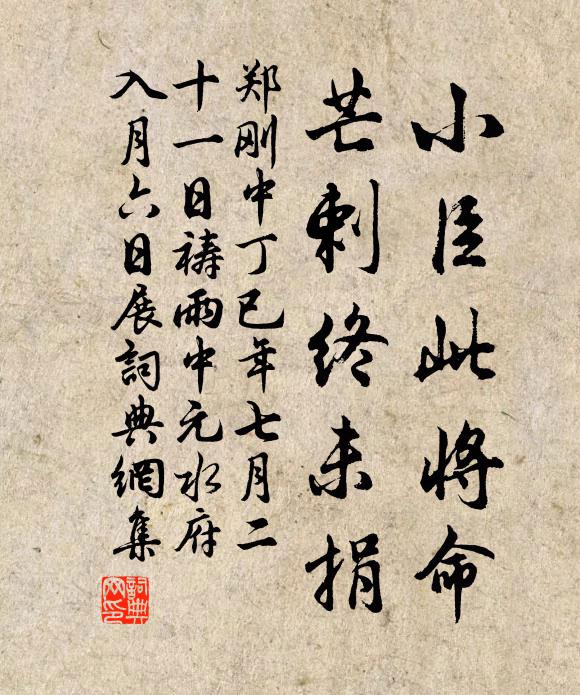 小臣此将命
芒刺终未捐
郑刚中丁巳年七月二
十一日禱雨中元水府
入月六日展詞典網集
詞典网印